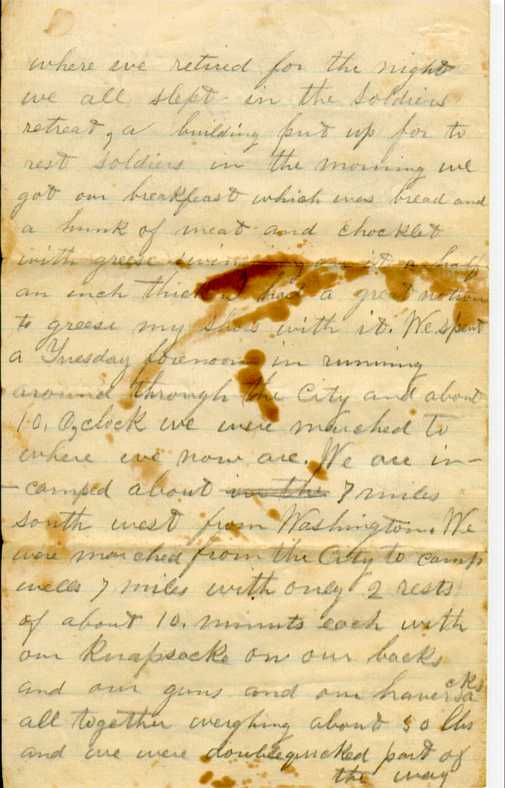 where we retired for the night
we all slept in the soldiers
retreat, a building put up for to
rest soldiers in the morning we
got our breakfast which was bread and
a hunk of meat and chocklet
with greese on it a half
an inch thick I had a great notion
to greese my shoes with it. We spent
a Tuesday forenoon in running
around through the City and about
10, Oclock we were marched to
where we now are. We are in-
-camped about in the 7 miles
south west from Washington. We
were marched from the City to camp
7 miles with only 2 rests
of about 10. minuts each with
our knapsacks on our backs
and our guns and our haversacks
all together weighing about 50 lbs
and we were doublequicked part of
the way